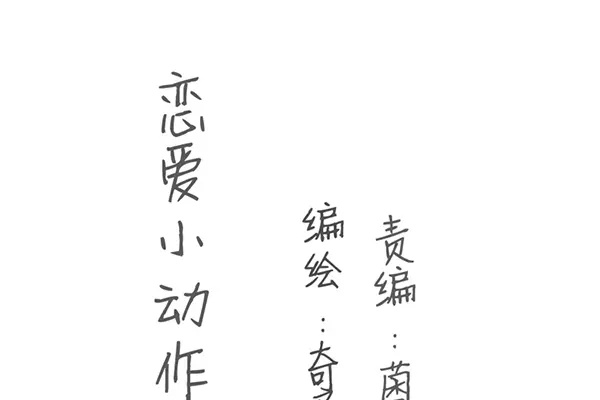 恋爱小动作
编绘：奇
责编：菌